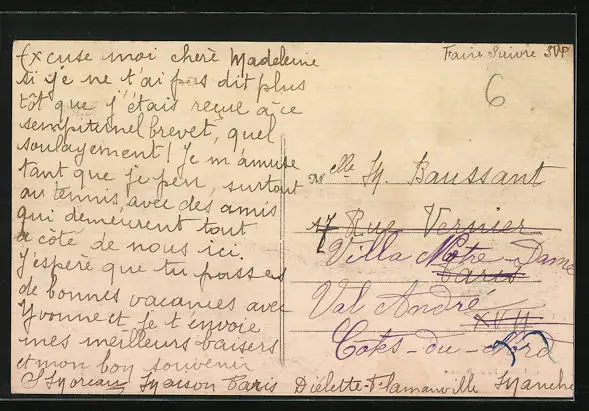 Excuse moi chère Madeleine
si je ne t'ai pas dit plus
tôt que j'étais reçue à ce
sempiternel brevet, quel
soulagement! Je m'amuse
tant que je peu, surtout
au tennis, avec des amis
qui demeurent tout
à côté de nous ici.
J'espère que tu passes
de bonnes vacances avec
Yvonne et je t'envoie
mes meilleurs baisers
et mon bon souvenir
Moreau Maison Paris Diélette-Flamanville Manche
Faire suivre SVP
6
Melle M. Baussant
17 Rue Vernier
Villa Notre-Dame
Paris
Val André
XVII
Cotes-du-Nord